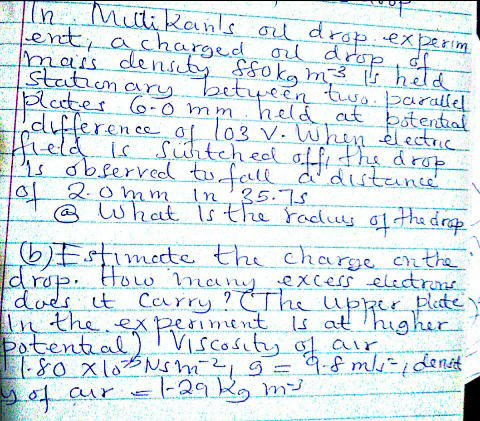 In Millikan's oil drop experim
ent, a charged oil drop of
mass density 880kg m-3 is held
stationary between two parallel
plates 6.0 mm held at potential
difference of 103 V. When electric
field is switched off, the drop
is observed to fall a distance
of 2.0mm in 35.7s
(a) What is the radius of the drop
(b) Estimate the charge on the
drop. How many excess electrons
does it carry? (The upper plate
in the experiment is at higher
potential) Viscosity of air
1.80 x 10-5 Nsm-2, g = 9.8 m/s2, densit
y of air = 1.29 kg m-3